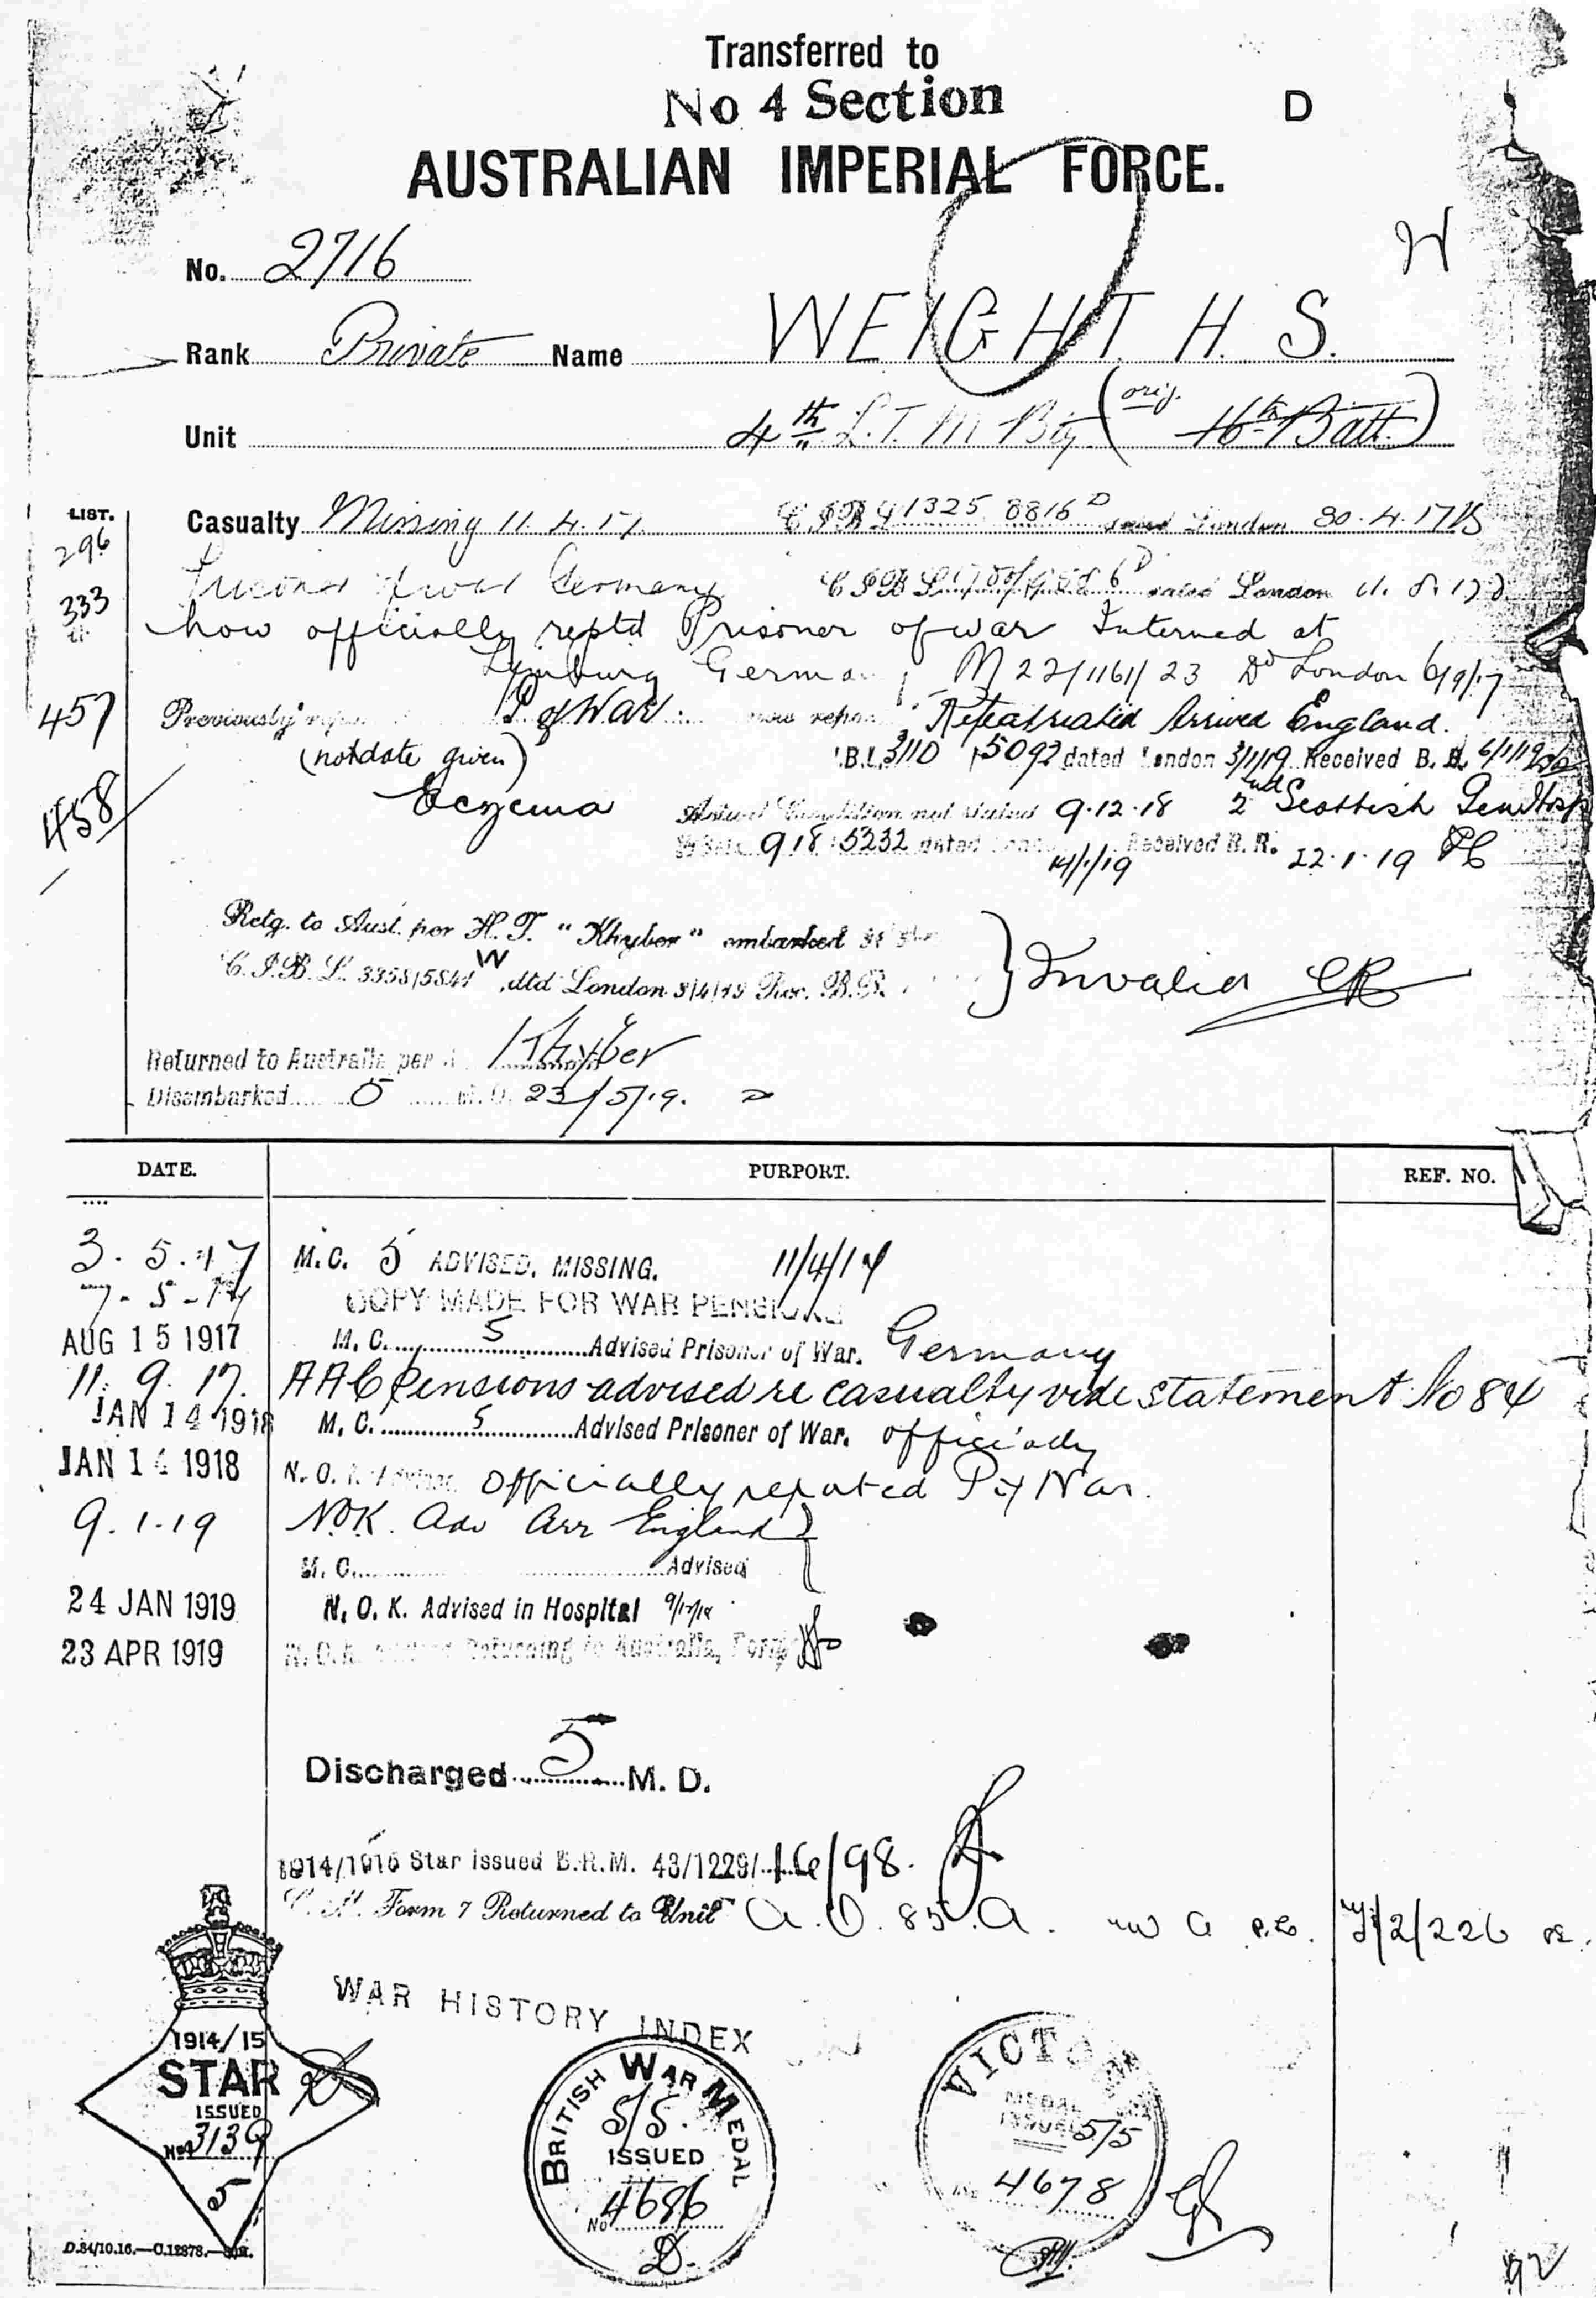 Transferred to
No 4 Section
D
AUSTRALIAN IMPERIAL FORCE.
No. 2716
W
Rank Private Name WEIGHT. H. S.
Unit 4th L.T.M Bty (orig. 16th Batt.)
LIST.
296
Casualty Missing 11.4.17. 1325 8816 D London 30.4.17
333
Prisoner of war Germany C I B L dated London 11.8.17
now officially reptd Prisoner of war Interned at
Limburg Germany M 22/1161/23 Dd London 6/9/17
457
Previously P of War now Repatriated Arrived England.
(not date given) B.L. 3110 5092 dated London 3/1/19 Received B. R. 6/1/19
458
Eczema
Actual Condition not stated 9.12.18 2nd Scottish Gen Hosp
918 5232 dated 14/1/19 Received B. R. 22.1.19
Retg. to Aust. per H.T. "Khyber" embarked
C.I.B.L. 3358/5841 W dtd London 9/4/19 Rec. B.R.
Invalid
Returned to Australia per Khyber
Disembarked 5 M.D. 23/5/19.
DATE. PURPORT. REF. NO.
3.5.17 M.C. 5 ADVISED, MISSING. 11/4/17
7-5-17 COPY MADE FOR WAR PENSIONS
AUG 15 1917 M.C. 5 Advised Prisoner of War. Germany
11.9.17. AAC Pensions advised re casualty vide statement No 84
JAN 14 1918 M.C. 5 Advised Prisoner of War. officially
JAN 14 1918 N.O.K. Advised Officially reported P of War.
9.1.19 NOK. Adv Arr England
M.C. Advised
24 JAN 1919 N.O.K. Advised in Hospital 9/12/18
23 APR 1919 N.O.K. Returning to Australia, Form
Discharged 5 M. D.
1914/1915 Star issued B.R.M. 43/1229/ 98.
Form 7 Returned to Unit A.O. 85.A. 2/226
WAR HISTORY INDEX
1914/15
STAR
ISSUED
No 3139
5
BRITISH WAR MEDAL
5/5.
ISSUED
No 4686
D.
VICTORY
MEDAL
ISSUED 5/5
No 4678
D.84/10.16.—C.12878.
92